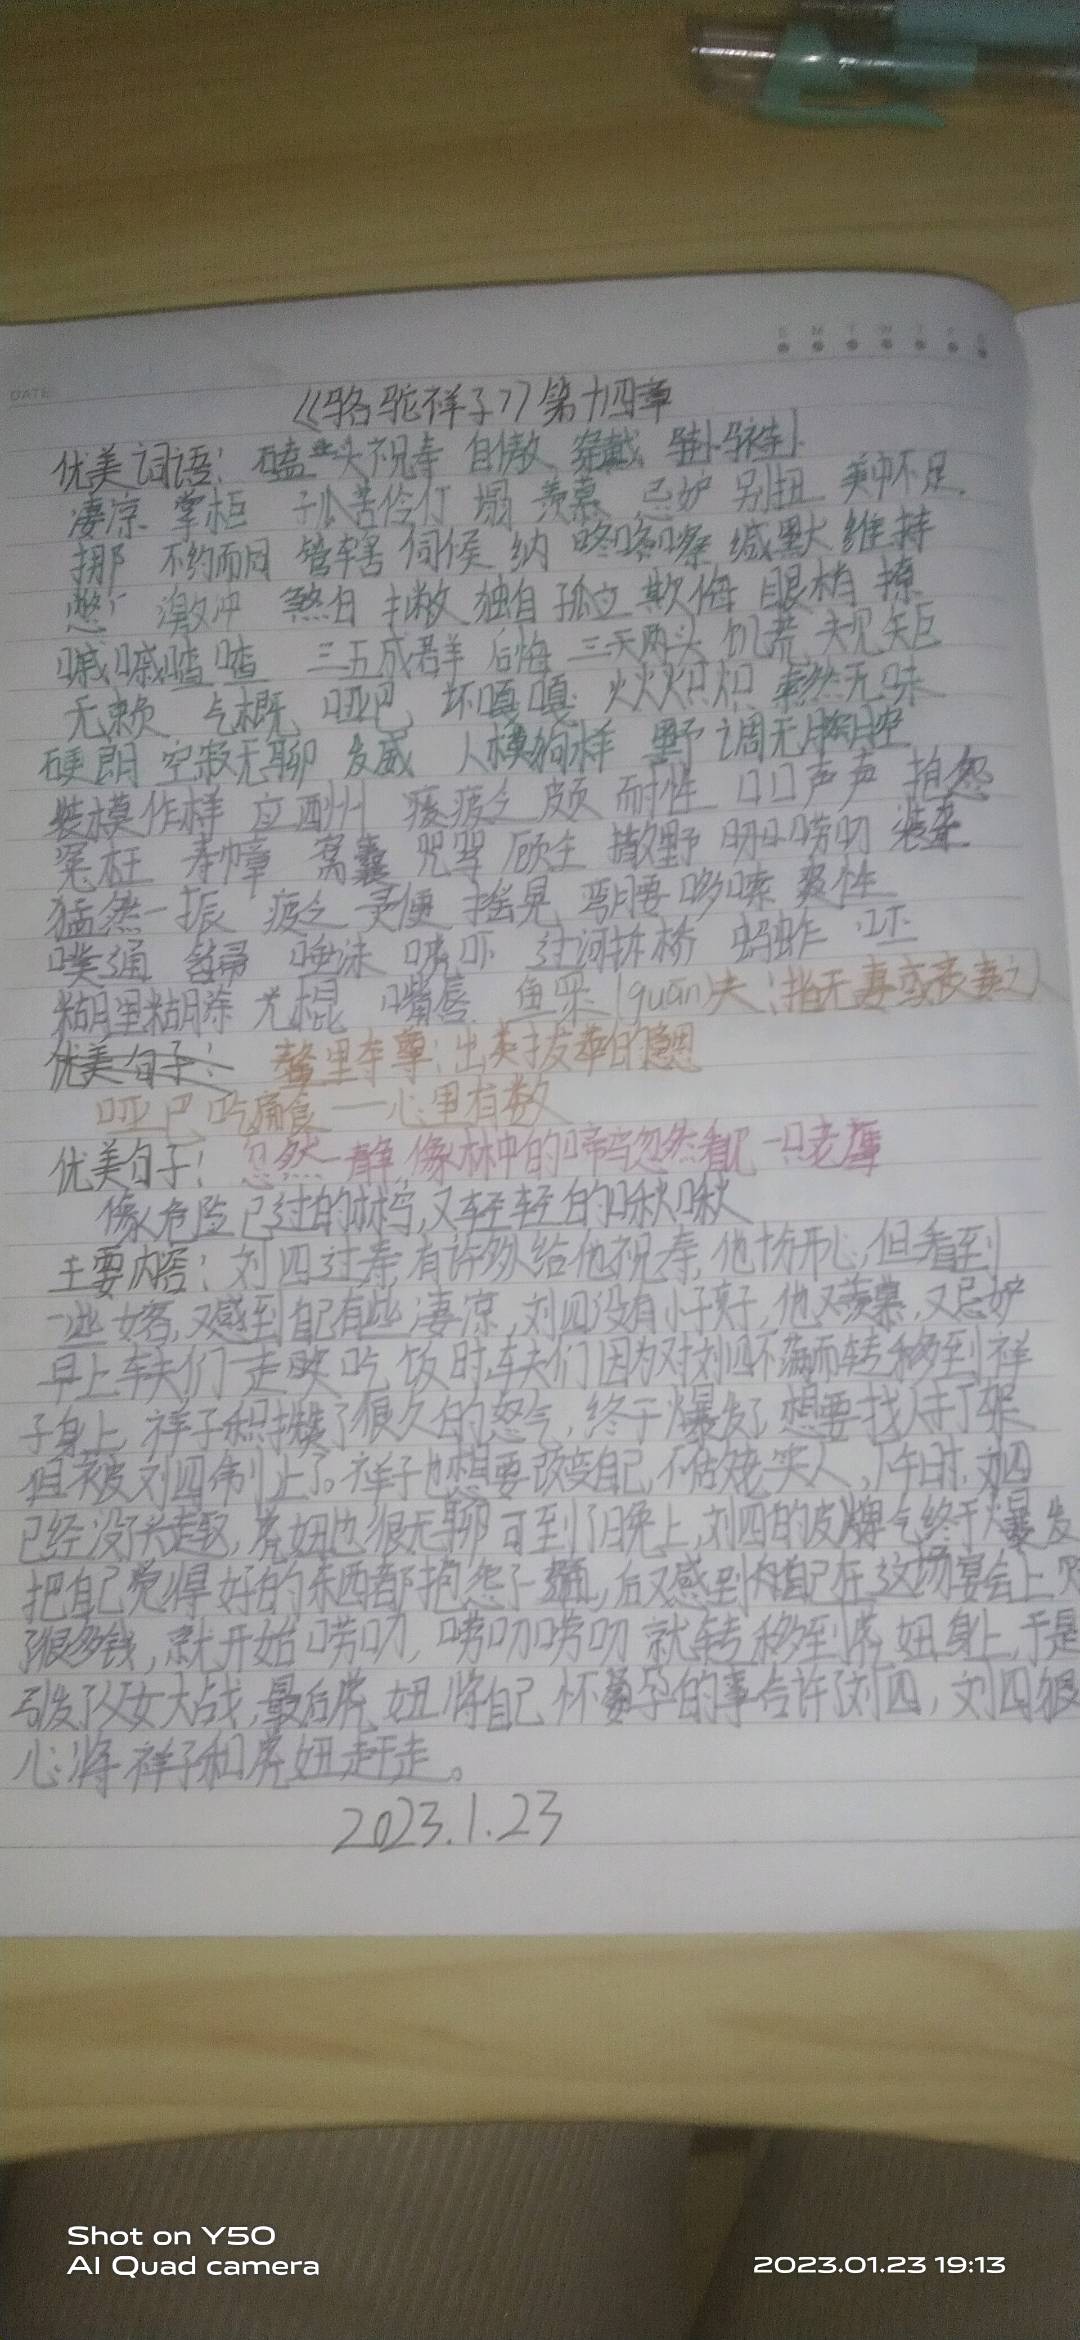 S M T W T F S
DATE
《骆驼祥子》第十四章
优美词语：磕头祝寿 自傲 穿戴
凄凉 掌柜 孤苦伶仃 塌 羡慕 忌妒 别扭 美中不足
挪 不约而同 管辖 伺候 纳 咚咚嚓 缄默 维持
憋 激冲 煞白 扫数 独自 孤立 欺侮 眼梢 撩
嘁嘁喳喳 三五成群 后悔 三天两头 饥荒 规矩
无赖 气概 哑巴 坏嘎嘎 火火炽炽 索然无味
硬朗 空寂无聊 发威 人模狗样 野调无腔
装模作样 应酬 疲乏 颇 耐性 口口声声 抱怨
冤枉 寿幛 窝囊 咒骂 顾全 撒野 叨唠叨
猛然一振 疲乏 灵便 摇晃 弯腰 哆嗦 爽性
噗通 唾沫 唬吓 过河拆桥 蚂蚱 呸
糊里糊涂 光棍 嘴唇 鱼眔(guān)夫：指无妻或丧妻之人
优美句子： 鳌里夺尊：出类拔萃的意思
哑巴吃扁食——心里有数
优美句子：忽然一静，像林中的啼鸟忽然看见一只老鹰
像危险已过的林鸟，又轻轻的啾啾
主要内容：刘四过寿，有许多人给他祝寿，他十分开心，但看到
一些女客，又感到自己有些凄凉，刘四没有儿子，他又羡慕，又忌妒
早上车夫们一走吃饭时，车夫们因为对刘四不满而转移到祥
子身上，祥子积攒了很久的怒气，终于爆发了想要找人打架
但被刘四制止了。祥子也想要改变自己，不估姥笑人，下午时，刘四
已经没了兴趣，虎妞也很无聊可到了晚上，刘四的皮脾气终于爆发
把自己觉得好的东西都抱怨了一遍，后又感到自己在这场宴会上
了很多钱，就开始唠叨，唠叨唠叨就转移到虎妞身上，于是
引发了父女大战，最后虎妞将自己怀孕的事告许了刘四，刘四狠
心将祥子和虎妞赶走。
2023.1.23
Shot on Y50
AI Quad camera
2023.01.23 19:13